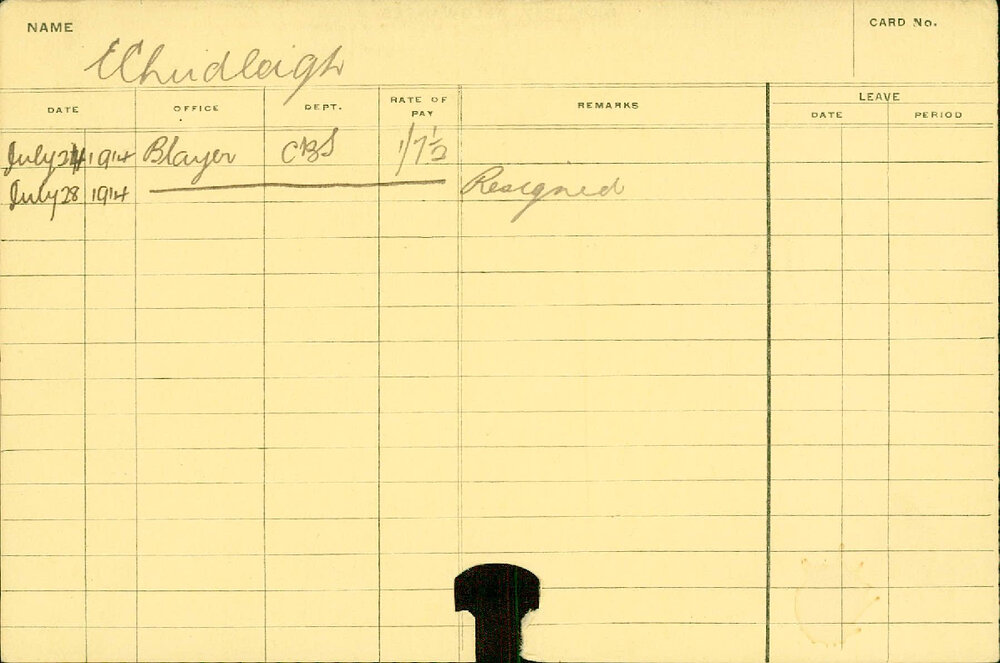 NAME
CARD No.
E Chudleigh
DATE OFFICE DEPT. RATE OF PAY REMARKS LEAVE
DATE PERIOD
July 24 1914 Blayer CBS 1/7½
July 28 1914 Resigned